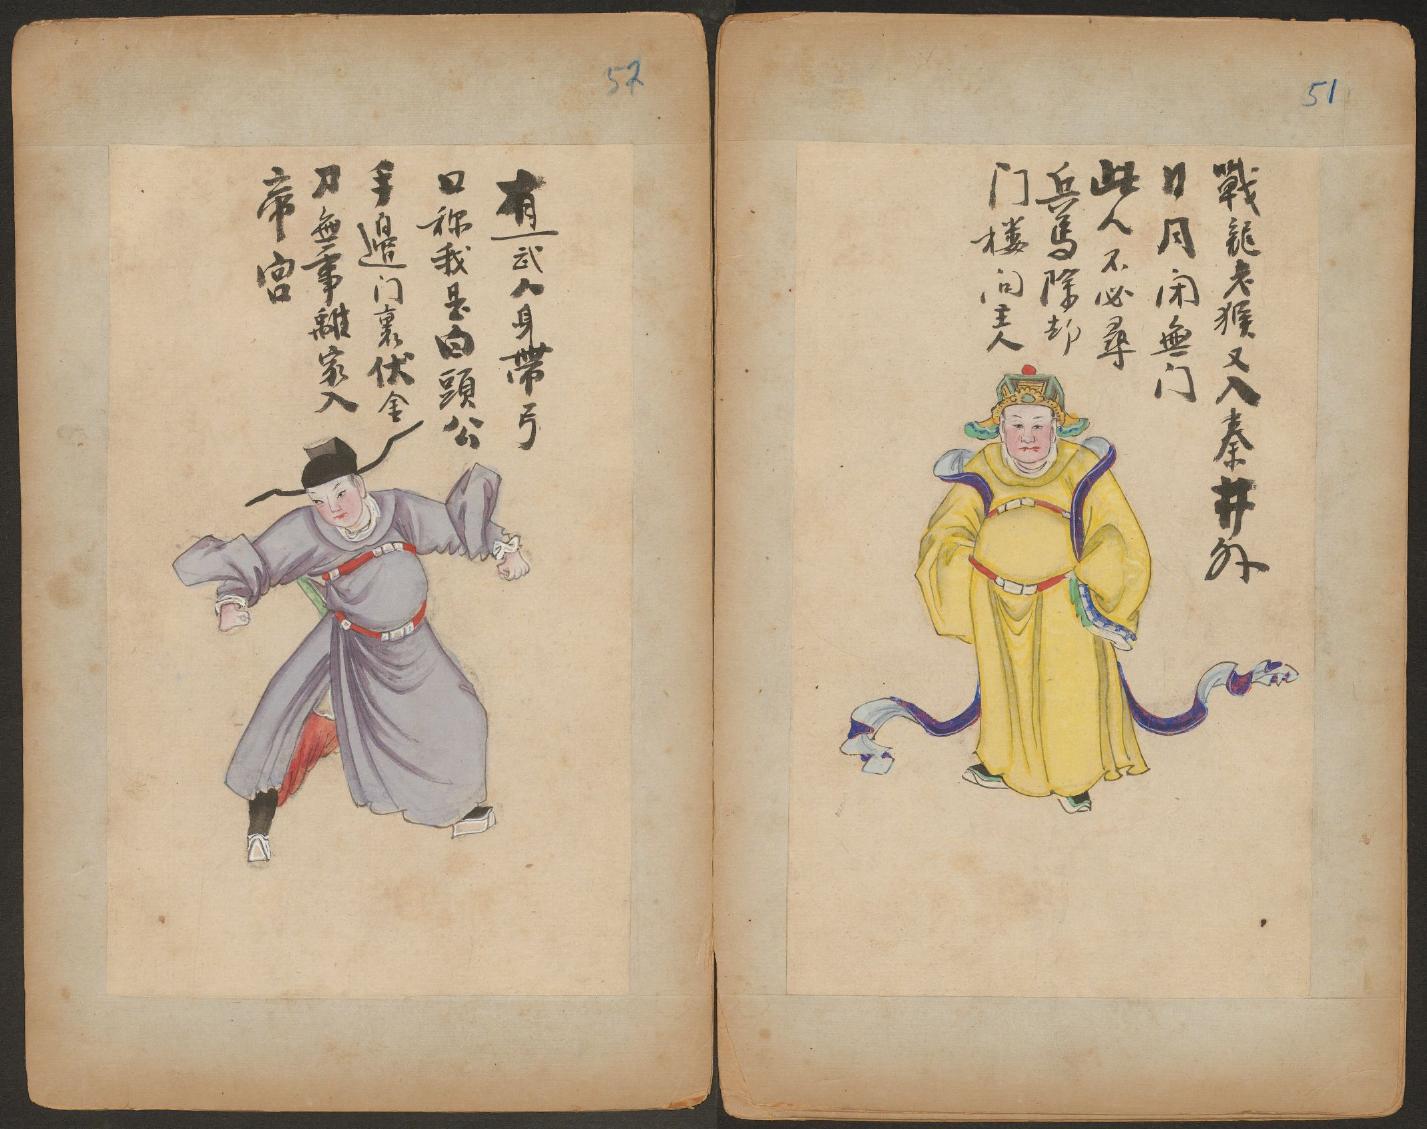 51
戰龍老猴又入秦井外
日月闭無门
此人不必尋
兵馬除却
门楼问主人
52
有一武人身帶弓
口称我是白頭公
手邊门裏伏金
刀無事離家入
帝宫